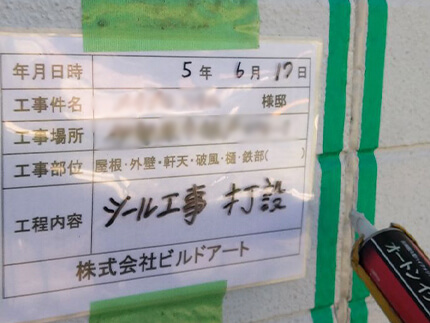 年月日時 5年 6月 17日
工事件名 様邸
工事場所
工事部位 屋根・外壁・軒天・破風・樋・鉄部( )
工程内容 シール工事 打設
株式会社ビルドアート
オートンイク